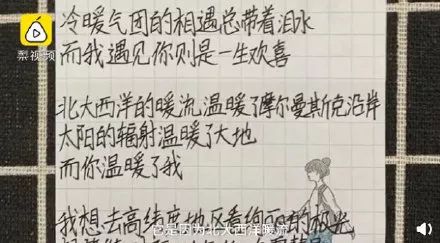 梨视频
冷暖气团的相遇总带着泪水
而我遇见你则是一生欢喜
北大西洋的暖流,温暖了摩尔曼斯克沿岸
太阳的辐射温暖了大地
而你温暖了我
它是因为北大西洋暖流
我想去高纬度地区看绚丽的极光